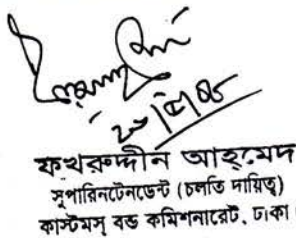 ফখরুদ্দীন আহ্‌মেদ
সুপারিনটেনডেন্ট (চলতি দায়িত্ব)
কাস্টমস্ বন্ড কমিশনারেট, ঢাকা।